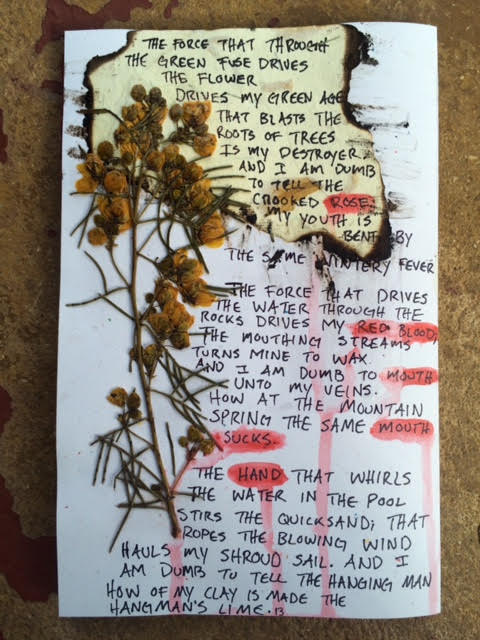 THE FORCE THAT THROUGH
THE GREEN FUSE DRIVES
THE FLOWER
DRIVES MY GREEN AGE
THAT BLASTS THE
ROOTS OF TREES
IS MY DESTROYER.
AND I AM DUMB
TO TELL THE
CROOKED ROSE
MY YOUTH IS
BENT BY
THE SAME WINTERY FEVER
THE FORCE THAT DRIVES
THE WATER THROUGH THE
ROCKS DRIVES MY RED BLOOD,
THE MOUTHING STREAMS
TURNS MINE TO WAX.
AND I AM DUMB TO MOUTH
UNTO MY VEINS.
HOW AT THE MOUNTAIN
SPRING THE SAME MOUTH
SUCKS.
THE HAND THAT WHIRLS
THE WATER IN THE POOL
STIRS THE QUICKSAND; THAT
ROPES THE BLOWING WIND
HAULS MY SHROUD SAIL. AND I
AM DUMB TO TELL THE HANGING MAN
HOW OF MY CLAY IS MADE THE
HANGMAN'S LIME.